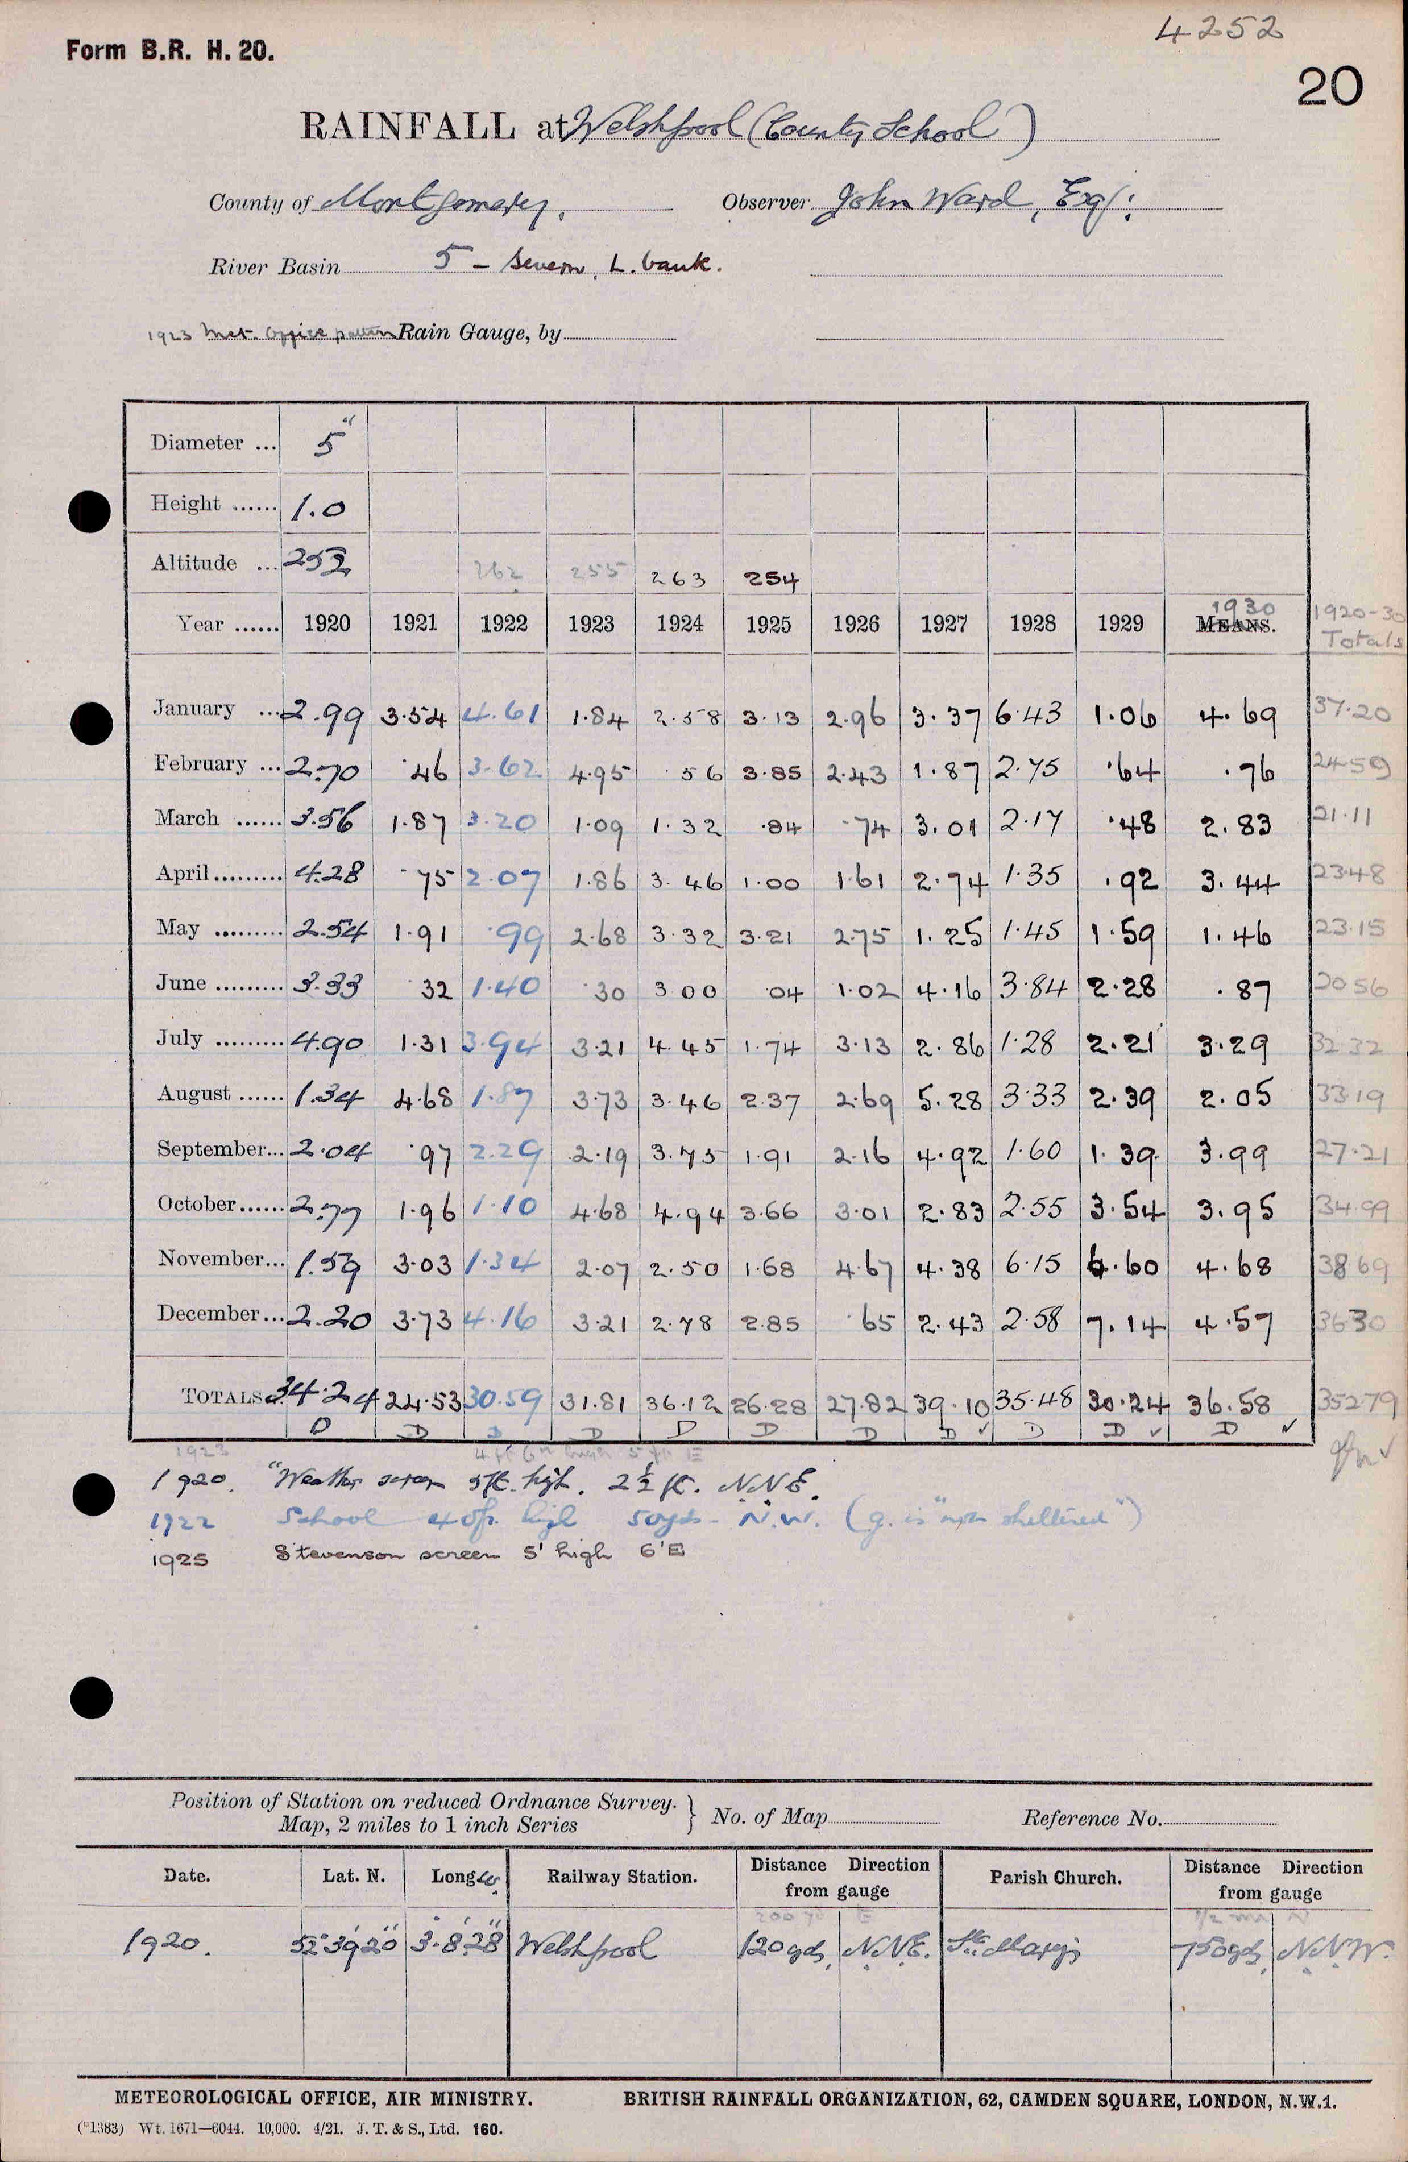 4252
Form B.R. H. 20.
20
RAINFALL at Welshpool (County School)
County of Montgomery. Observer John Ward, Esq:
River Basin 5 - Severn, L. bank.
1923 Met. Office pattern Rain Gauge, by
Diameter ... 5"
Height ...... 1.0
Altitude ... 252 262 255 263 254
Year ...... 1920 1921 1922 1923 1924 1925 1926 1927 1928 1929 1930 MEANS. 1920-30 Totals
January ... 2.99 3.54 4.61 1.84 2.58 3.13 2.96 3.37 6.43 1.06 4.69 37.20
February ... 2.70 .46 3.62 4.95 56 3.85 2.43 1.87 2.75 .64 .76 24.59
March ...... 3.56 1.87 3.20 1.09 1.32 .84 .74 3.01 2.17 .48 2.83 21.11
April ......... 4.28 .75 2.07 1.86 3.46 1.00 1.61 2.74 1.35 .92 3.44 23.48
May ......... 2.54 1.91 .99 2.68 3.32 3.21 2.75 1.25 1.45 1.59 1.46 23.15
June ......... 3.33 .32 1.40 .30 3.00 .04 1.02 4.16 3.84 2.28 .87 20.56
July ......... 4.90 1.31 3.94 3.21 4.45 1.74 3.13 2.86 1.28 2.21 3.29 32.32
August ...... 1.34 4.68 1.87 3.73 3.46 2.37 2.69 5.28 3.33 2.39 2.05 33.19
September... 2.04 .97 2.29 2.19 3.75 1.91 2.16 4.92 1.60 1.39 3.99 27.21
October...... 2.77 1.96 1.10 4.68 4.94 3.66 3.01 2.83 2.55 3.54 3.95 34.99
November... 1.59 3.03 1.34 2.07 2.50 1.68 4.67 4.38 6.15 6.60 4.68 38.69
December... 2.20 3.73 4.16 3.21 2.78 2.85 .65 2.43 2.58 7.14 4.57 36.30
TOTALS 34.24 24.53 30.59 31.81 36.12 26.28 27.82 39.10 35.48 30.24 36.58 352.79
D D D D D D D D ✓ D D ✓ D ✓
1923 4 ft 6 in high 5 ft E
1920. "Weather screen 5ft. high. 2½ ft. N.N.E.
1922 School 40ft. high 50yds - N.W. (g. is " sheltered")
1925 Stevenson screen 5' high 6'E
Position of Station on reduced Ordnance Survey. } No. of Map Reference No.
Map, 2 miles to 1 inch Series
Date. Lat. N. Long W. Railway Station. Distance Direction from gauge Parish Church. Distance Direction from gauge
200 yd E ½ mi N
1920. 52°39'20" 3°8'28" Welshpool 120yds. N.N.E. St. Mary's 750yds. N.N.W.
METEOROLOGICAL OFFICE, AIR MINISTRY. BRITISH RAINFALL ORGANIZATION, 62, CAMDEN SQUARE, LONDON, N.W.1.
(*1383) Wt. 1671—6044. 10,000. 4/21. J. T. & S., Ltd. 160.